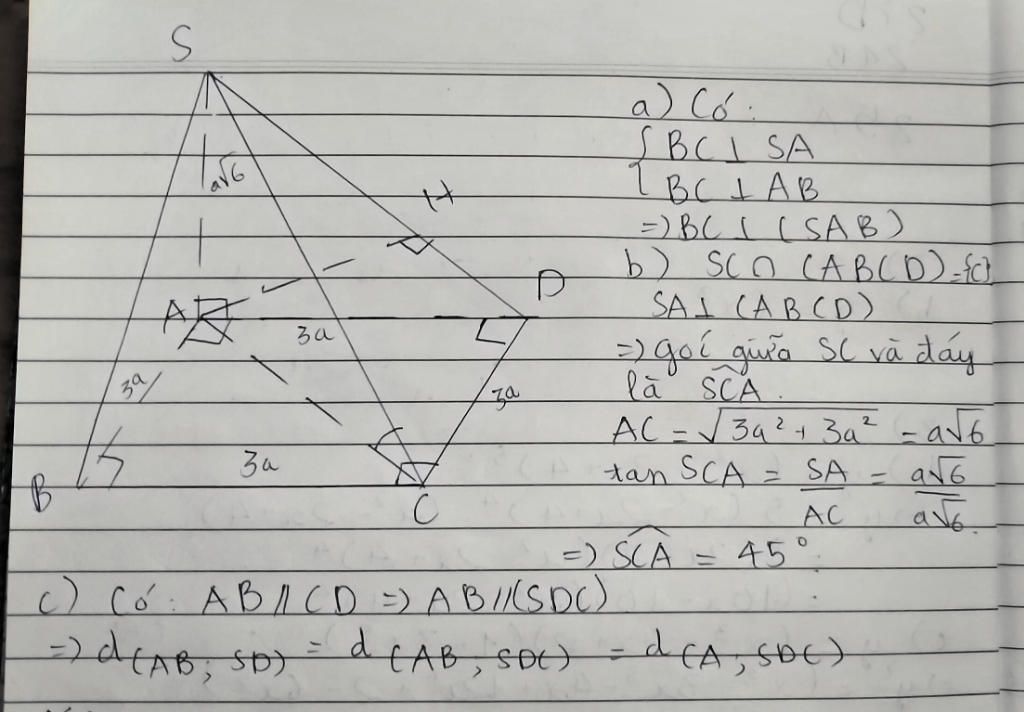 S
a√6
H
A
D
3a
3a
3a
B
3a
C
a) Có:
{ BC ⊥ SA
{ BC ⊥ AB
=) BC ⊥ (SAB)
b) SC ∩ (ABCD) = {C}
SA ⊥ (ABCD)
=) góc giữa SC và đáy
là SCA.
AC = √3a² + 3a² = a√6
tan SCA = SA/AC = a√6/a√6.
=) SCA = 45°.
c) Có: AB // CD => AB // (SDC)
=) d(AB; SD) = d(AB; SDC) = d(A; SDC)